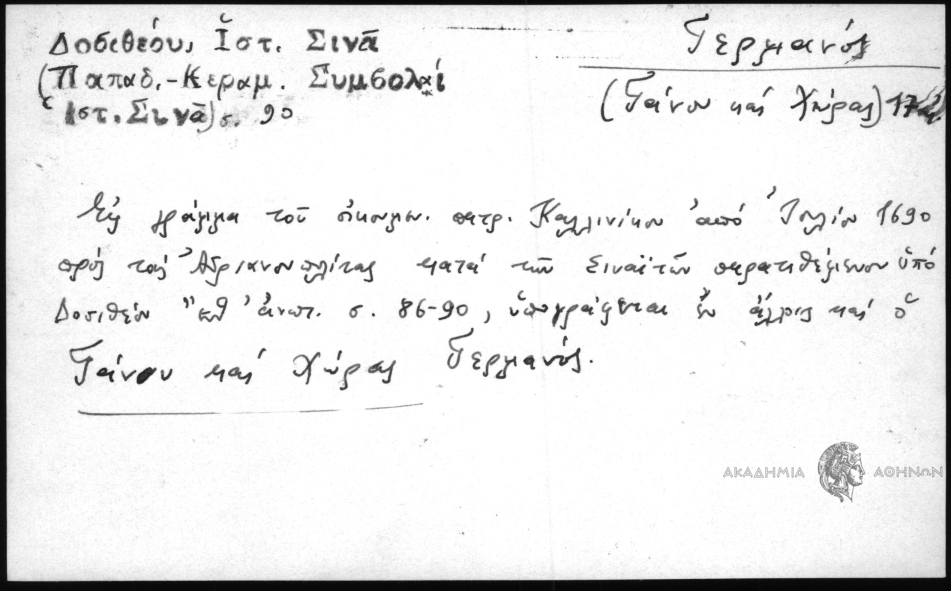 Δοσιθέου, Ἱστ. Σινᾶ
(Παπαδ.-Κεραμ. Συμβολαί
Ἱστ. Σινᾶ) σ. 90
Γερμανός
(Γάνου καί Χώρας) 17
Εἰς γράμμα τοῦ οἰκουμ. πατρ. Καλλινίκου ἀπό Ἰουλίου 1690
πρός τούς Ἀδριανουπολίτας κατά τῶν Σιναϊτῶν παρατιθέμενον ὑπό
Δοσιθέου ἀνωτ. σ. 86-90, ὑπογράφεται ἐν ἄλλοις καί ὁ
Γάνου καί Χώρας Γερμανός.
ΑΚΑΔΗΜΙΑ ΑΘΗΝΩΝ